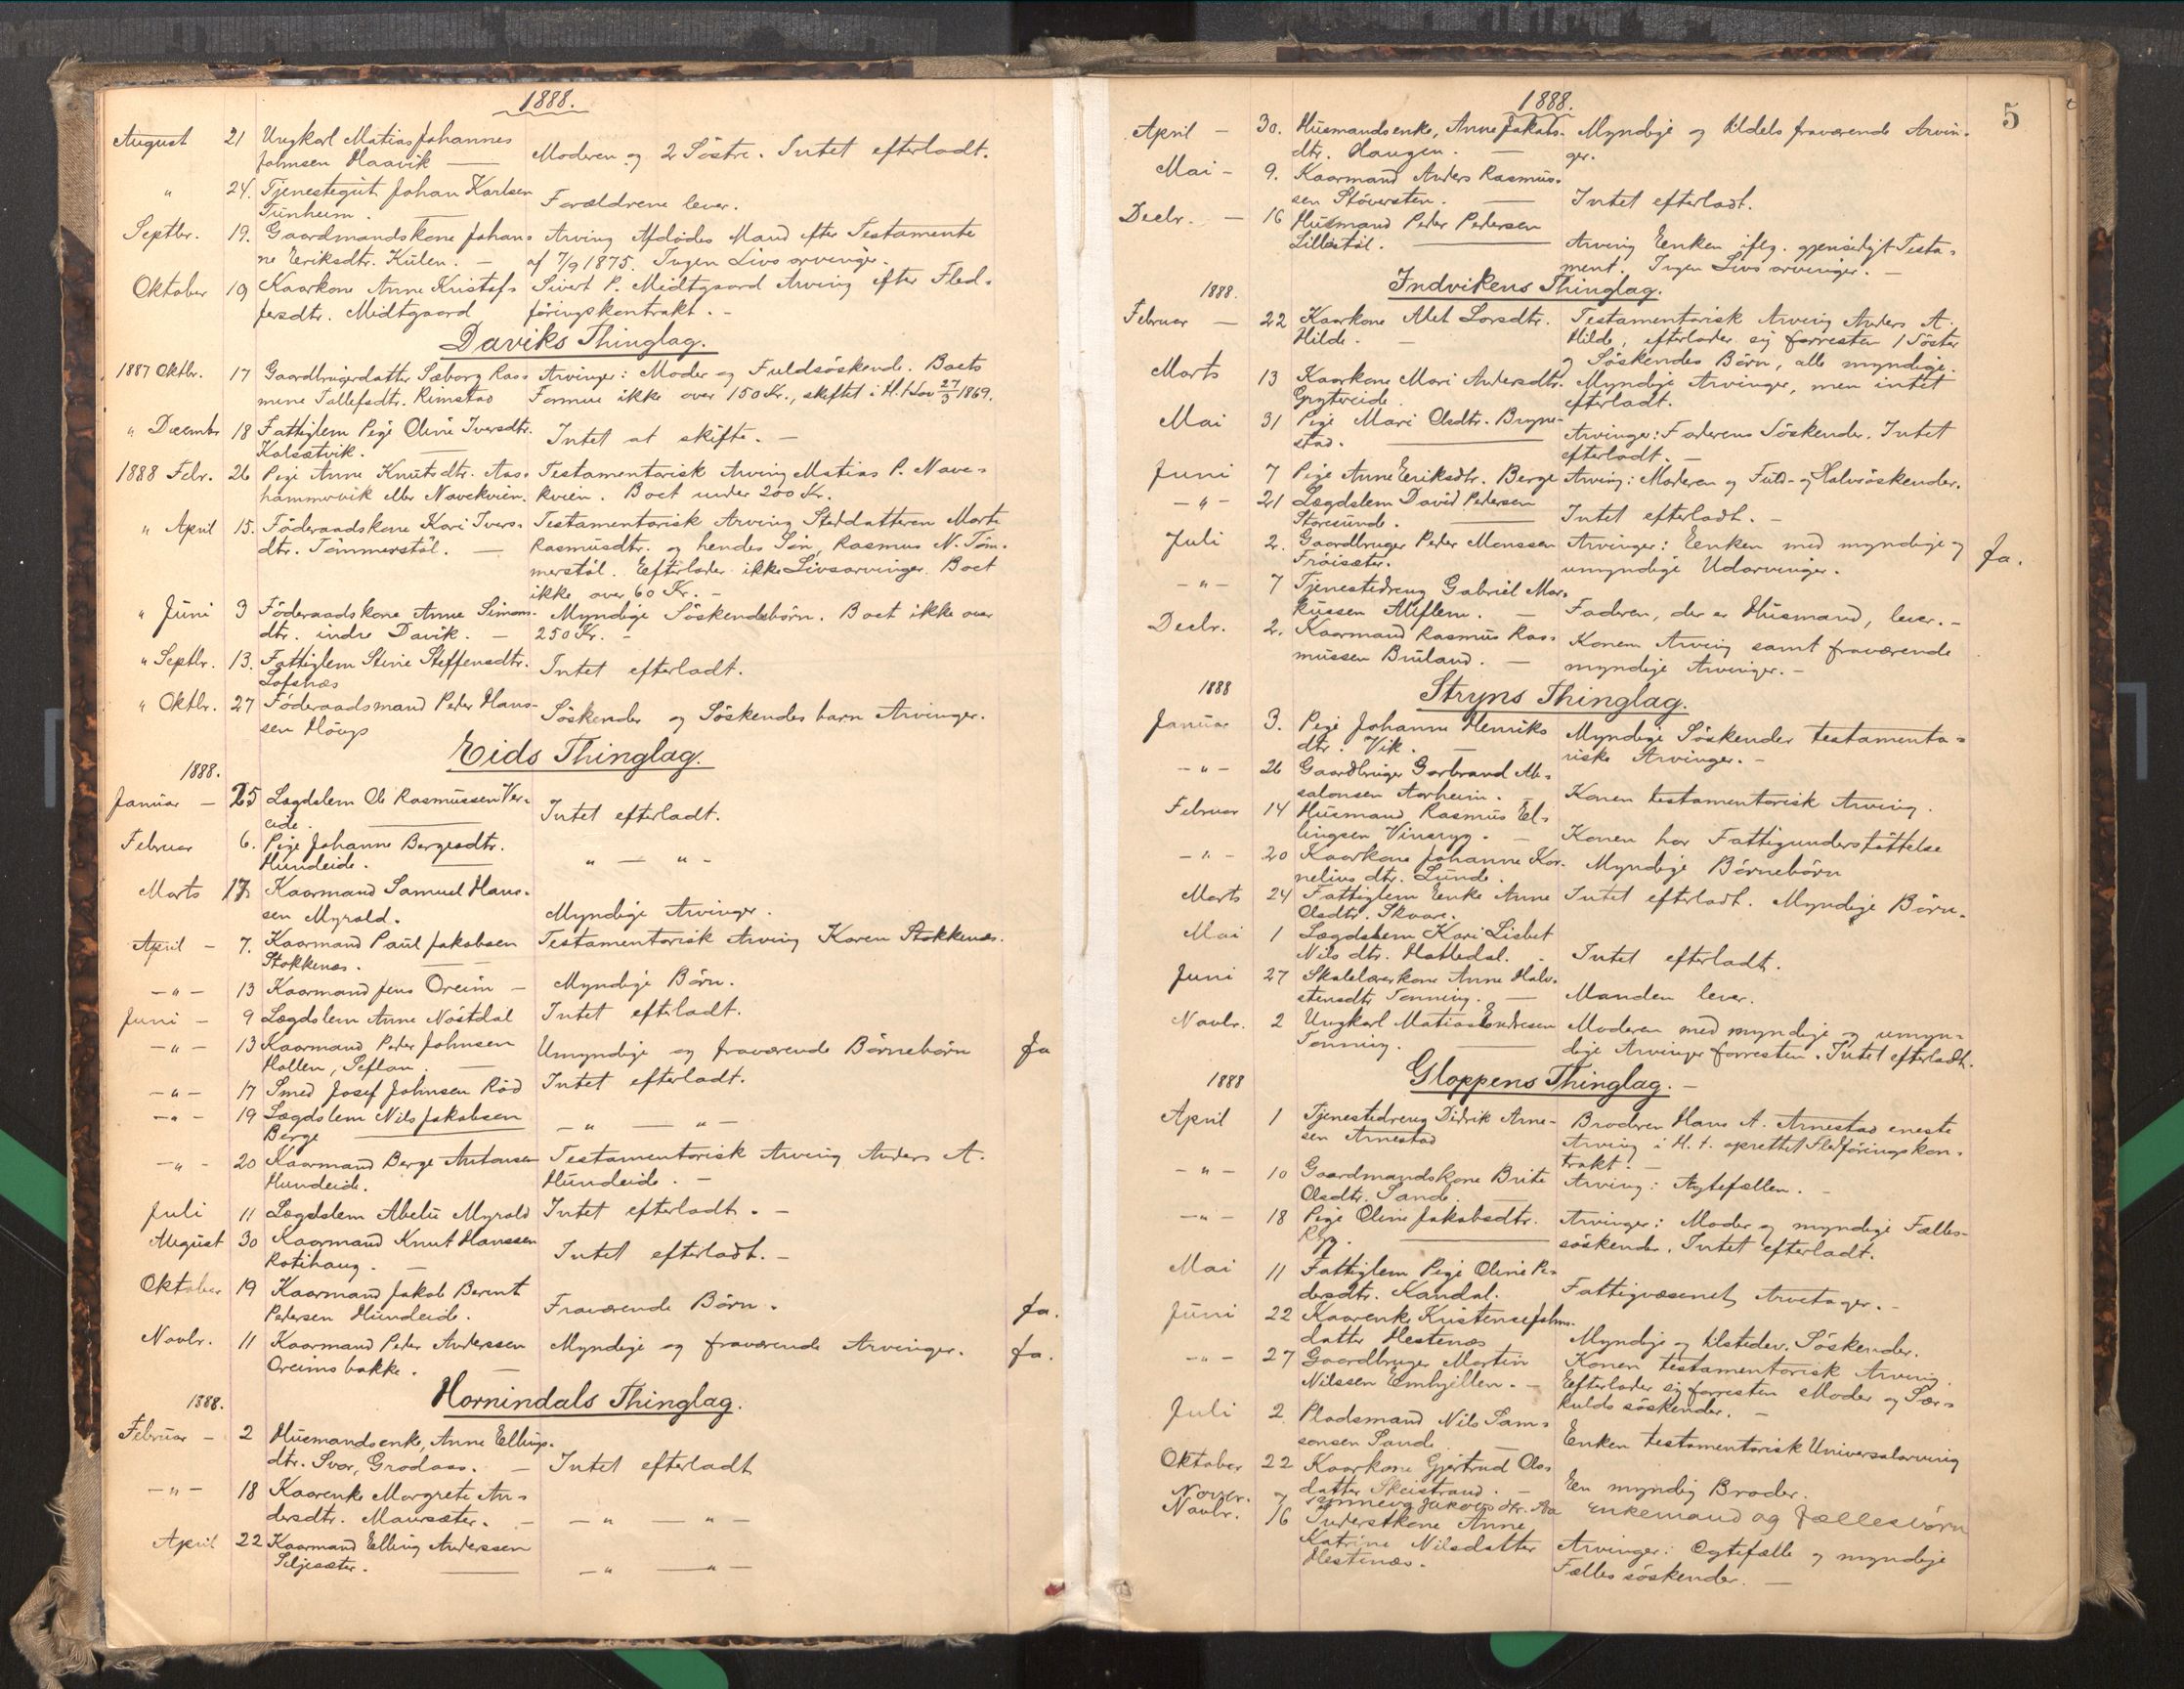 1888.
August 21 Ungkarl Matias Johannes
Johnsen Haavik — Moderen og 2 Söstre. Intet efterladt.
" 24. Tjenestegut Johan Karlsen
Tunheim. — Forældrene lever.
Septbr. 19. Gaardmandskone Johan= Arving Afdödes Mand efter Testamente
ne Eriksdtr. Kulen. — af 7/9 1875. Ingen Livsarvinger.
Oktober 19 Kaarkone Anne Kristof= Sivert P. Midtgaard Arving efter Fled=
fersdtr. Midtgaard föringskontrakt. -
Daviks Thinglag.
1887 Oktbr. 17 Gaardbrugerdatter Søborg Ras= Arvinger: Moder og Fuldsöskende. Boets
mine Tollefsdtr. Rimstad Formue ikke over 150 Kr., skiftet i H. t. Lov 27/3 1869.
" Decembr 18 Fattiglem Pige Oline Iversdtr.
Kalsætvik. — Intet at skifte. -
1888 Febr. 26 Pige Anne Knutsdtr. Aas= Testamentarisk Arving Matias P. Nave=
hammervik eller Navekvien. kvien. Boet under 200 Kr.
" April 15. Föderaadskone Kari Ivers= Testamentarisk Arving Steddatteren Marte
dtr. Tömmerstöl. — Rasmusdtr. og hendes Sön, Rasmus N. Töm=
merstöl. Efterlader ikke Livsarvinger. Boet
ikke over 60 Kr. -
" Juni 3 Föderaadskone Anne Simons= Myndige Söskendebörn. Boet ikke over
dtr. indre Davik. — 250 Kr. -
" Septbr. 13. Fattiglem Stine Steffensdtr.
Lofsnæs Intet efterladt.
" Oktbr. 27 Föderaadsmand Peder Hans=
sen Hougs Söskender og Söskendes barn Arvinger.
Eids Thinglag.
1888.
Januar — 25 Lægdslem Ole Rasmussen Ver=
eide. — Intet efterladt.
Februar 6. Pige Johanne Bergesdtr.
Hundeide. — " — " -
Marts 17. Kaarmand Samuel Hans=
sen Myrold. Myndige Arvinger.
April — 7. Kaarmand Paul Jakobsen Testamentarisk Arving Karen Stokkenæs.
Stokkenæs. —
— " — 13 Kaarmand Jens Oreim — Myndige Börn.
Juni — 9 Lægdslem Anne Nöstdal Intet efterladt.
— " — 13 Kaarmand Peder Johnsen Umyndige og fraværende Börnebörn Ja
Hollen, Leflan. —
— " — 17 Smed Josef Johnsen Röd Intet efterladt.
— " — 19 Lægdslem Nils Jakobsen
Berge — — " — " —
— " — 20 Kaarmand Berge Antonsen Testamentarisk Arving Anders A.
Hundeide. Hundeide. -
Juli 11 Lægdslem Abelu Myrold Intet efterladt. -
August 30 Kaarmand Knut Hanssen
Rotihaug. — Intet efterladt. -
Oktober 19 Kaarmand Jakob Berent
Petersen Hundeide. Fraværende Börn. Ja.
Novbr. 11 Kaarmand Peder Anderssen Myndige og fraværende Arvinger. Ja.
Oreimsbakke. —
1888. Hornindals Thinglag.
Februar — 2 Husmandsenke, Anne Ellings=
dtr. Svor, Grodaas. — Intet efterladt
— " — 18 Kaarenke Margrete An=
dersdtr. Maursæter. — — " — " —
April 22 Kaarmand Elling Anderssen
Seljesæter. — — " — " —
5
1888.
April — 30. Husmandsenke, Anne Jakobs= Myndige og tildels fraværende Arvin=
dtr. Haugen. — ger.
Mai — 9. Kaarmand Anders Rasmus=
sen Stöversten. — Intet efterladt.
Decbr. — 16 Husmand Peder Pedersen
Lillestöl. — Arving Enken iflg. gjensidigt Testa=
ment. Ingen Livsarvinger. -
1888. Indvikens Thinglag.
Februar — 22 Kaarkone Alet Larsdtr. Testamentarisk Arving Anders A.
Hilde. — Hilde, efterlader sig forresten 1 Söster
og Söskendes Börn, alle myndige.
Marts 13 Kaarkone Mari Andersdtr. Myndige Arvinger, men intet
Grytreide. efterladt.
Mai 31 Pige Mari Olsdtr. Bryne=
stad. — Arvinger: Faderens Söskender. Intet
efterladt. -
Juni 7 Pige Anne Eriksdtr. Berge Arving: Moderen og Fuld- og Halvsöskender.
— " — 21 Lægdslem David Pedersen
Storesunde. — Intet efterladt. -
Juli 2. Gaardbruger Peder Monssen Arvinger: Enken med myndige og Ja.
Fröisæter. umyndige Udarvinger.
— " — 7 Tjenestedreng Gabriel Mar=
kussen Muflem. — Faderen, der er Husmand, lever. -
Decbr. 2. Kaarmand Rasmus Ras= Konen Arving samt fraværende
mussen Bruland. — myndige Arvinger. -
1888 Stryns Thinglag.
Januar 3. Pige Johanne Henriks Myndige Söskender testamenta=
dtr. Vik. — riske Arvinger. -
— " — 26 Gaardbruger Gerbrand Ab=
salonsen Aarheim. — Konen testamentarisk Arving.
Februar 14 Husmand Rasmus El=
lingsen Vinsryg. — Konen har Fattigunderstöttelse
— " — 20 Kaarkone Johanne Kor= Myndige Börnebörn
nelius dtr. Lunde.
Marts 24 Fattiglem Enke Anne Intet efterladt. Myndige Börn.
Olsdtr. Skaare.
Mai 1 Lægdslem Kari Lisbet
Nils dtr. Hatledal. - Intet efterladt.
Juni 27 Skolelærerkone Anne Halv=
stensdtr Tonning. — Manden lever.
Novbr. 2 Ungkarl Matias Endresen Moderen med myndige og umyn=
Tonning. — dige Arvinger forresten. Intet efterladt.
1888 Gloppens Thinglag. -
April 1 Tjenestedreng Didrik Arne= Broderen Hans A. Arnestad eneste
sen Arnestad Arving i H. t. oprettet Fledföringskon=
trakt. -
— " — 10 Gaardmandskone Brite Arving: Ægtefællen. -
Olsdtr. Sande. —
— " — 18 Pige Oline Jakobsdtr. Arvinger: Moder og myndige Fælles=
Ryg. — söskender. Intet efterladt.
Mai 11 Fattiglem Pige Oline Pe=
dersdtr. Kandal. Fattigvæsenet, Arvetager. -
Juni 22 Kaarenke Kristense Johns=
datter Hestenæs Myndige og tilstedev. Söskender.
— " — 27 Gaardbruger Martin Konen testamentarisk Arving.
Nilssen Emhjellen. — Efterlader sig forresten Moder og Sær=
kulds söskender. —
Juli 2. Pladsmand Nils Sam=
sonsen Sande — Enken testamentarisk Universalarving
Oktober 22 Kaarkone Gjertrud Ols=
datter Skeistrand. — En myndig Broder.
Novbr. 7 Jakobs dtr. Enkemand og fællesbörn
Novbr. 16 Inderstkone Anne
Katrine Nilsdatter Arvinger: Ægtefælle og myndige
Hestenæs. Fællessöskender. —